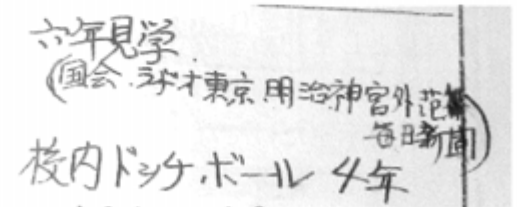 六年見学
(国会.ラジオ東京.明治神宮外苑
毎日新聞)
校内ドッチ.ボール 4年